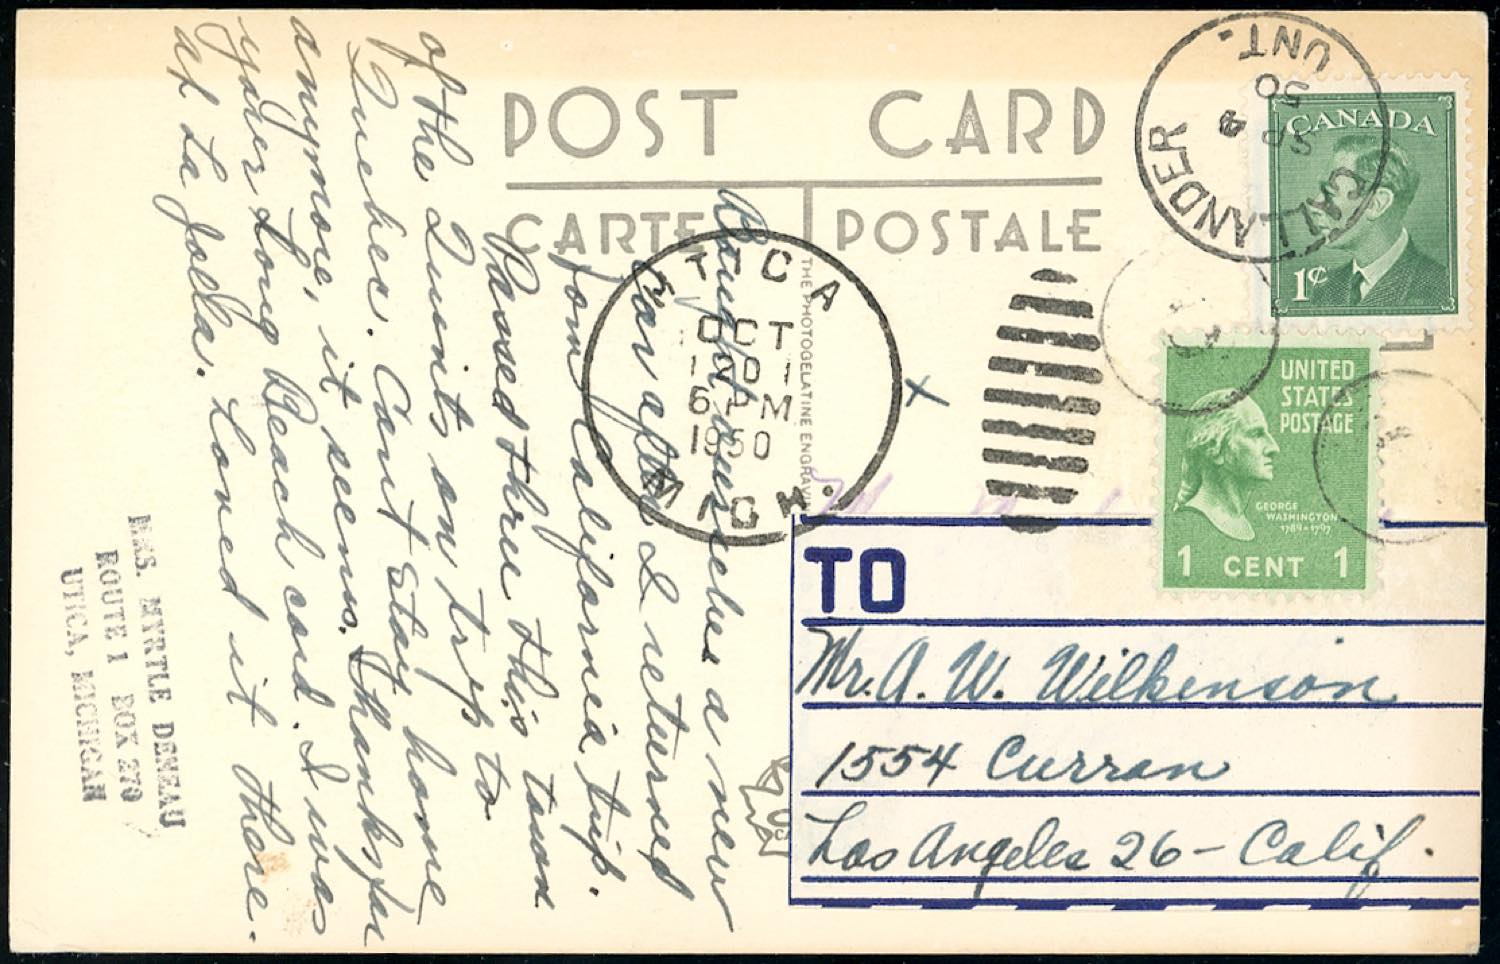 POST CARD
CARTE POSTALE
THE PHOTOGELATINE ENGRAVIN
CALLANDER
SP 4
50
ONT.
CANADA
1¢
UNITED
STATES
POSTAGE
GEORGE
WASHINGTON
1789-1797
1 CENT 1
UTICA
OCT
1950
6 PM
MICH.
X
Bought ourselves a new
car after I returned
from California trip.
Passed thru this town
of the Quints on trip to
Quebec. Can't stay home
anymore, it seems. Thanks for
your Long Beach card. I was
at La Jolla. Loved it there.
MRS. MYRTLE DENEAU
ROUTE 1 BOX 270
UTICA, MICHIGAN
TO
Mr. A. W. Wilkenson
1554 Curran
Los Angeles 26 - Calif.